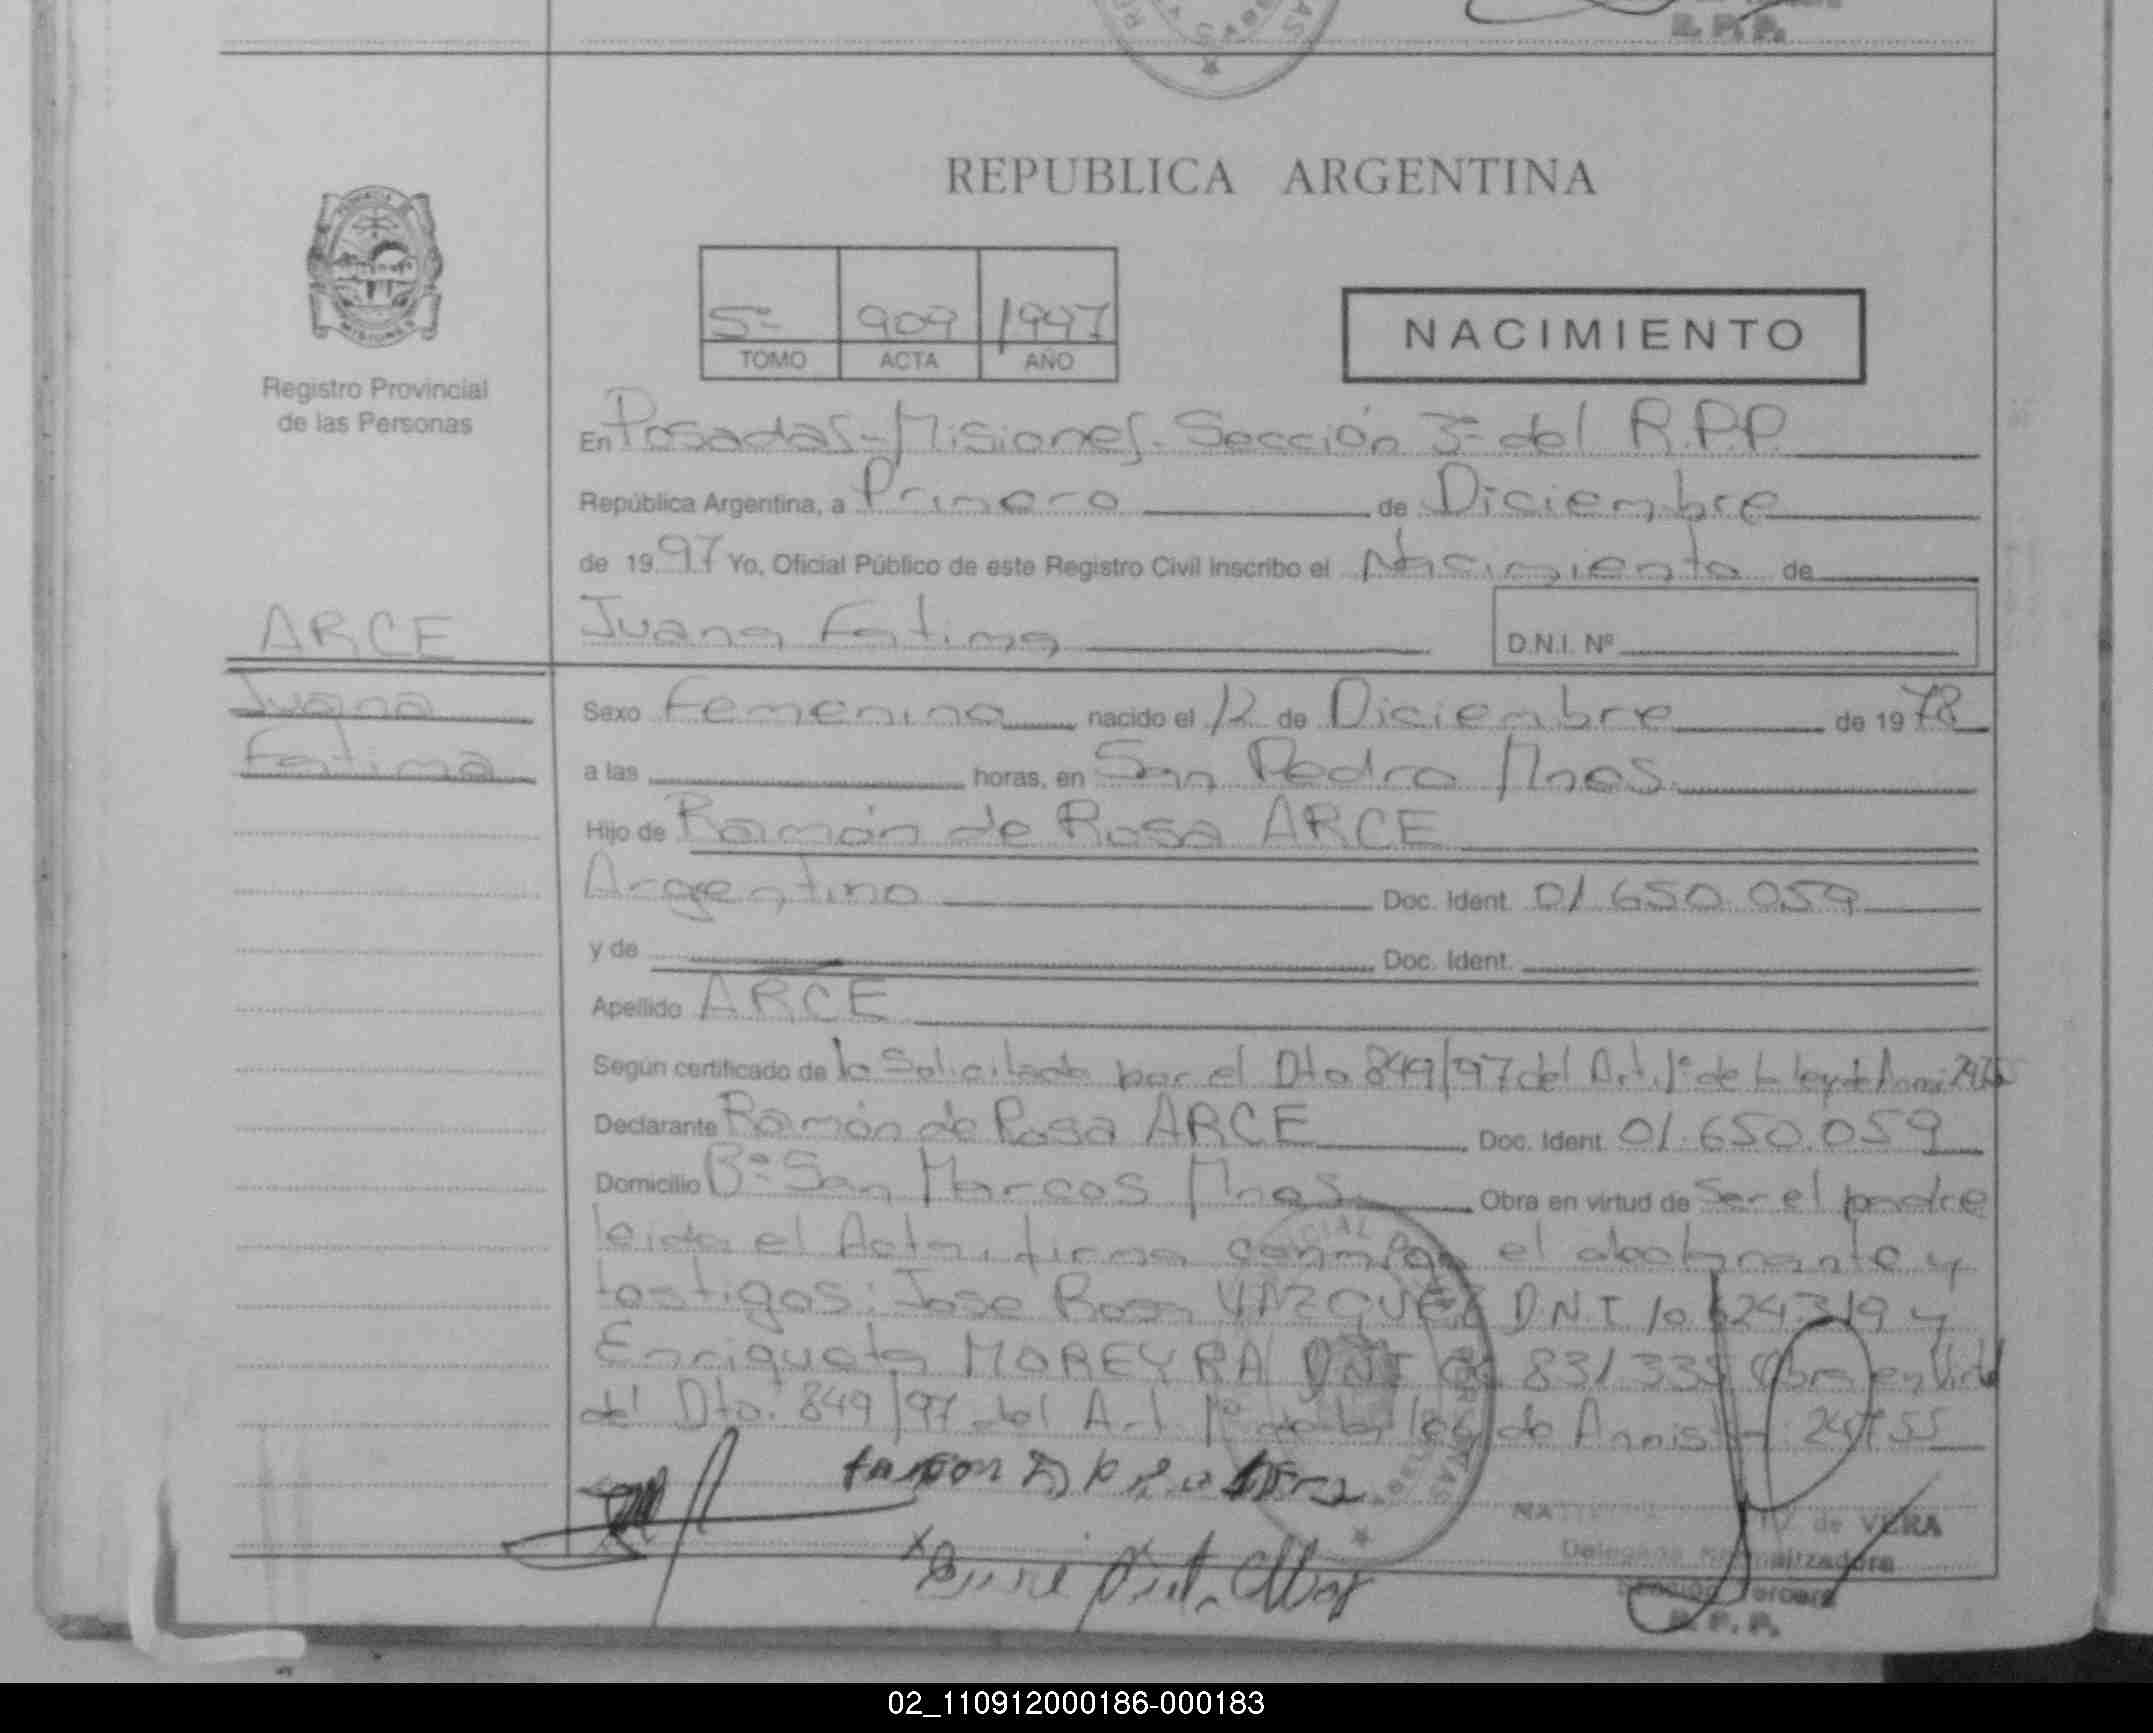 R. P. P.
REPUBLICA ARGENTINA
5º 909 1997
TOMO ACTA AÑO
NACIMIENTO
Registro Provincial
de las Personas
En Posadas-Misiones-Sección 3ª del R.P.P.
República Argentina, a Primero de Diciembre
de 1997 Yo, Oficial Público de este Registro Civil Inscribo el Nacimiento de
ARCE
Juana Fatima
D.N.I. Nº
Juana
Fatima
Sexo Femenino nacido el 12 de Diciembre de 1978
a las horas, en San Pedro Mnes.
Hijo de Ramón de Rosa ARCE
Argentino Doc. Ident. 01 650 059
y de Doc. Ident.
Apellido ARCE
Según certificado de lo Solicitado por el Dto 849/97 del Art. 1º de la ley de
Declarante Ramón de Rosa ARCE Doc. Ident. 01.650.059
Domicilio Bº San Marcos Mnes. Obra en virtud de Ser el padre
leida el Acta, firma el y
testigos: Jose Rosa VAZQUEZ D.N.I 10 624319 y
Enriqueta MOREYRA DNI 831 335
del Dto. 849/97 del Art 1º de la ley de
de VERA
Delegada Normalizadora
Sección Tercera
R. P. P.
02_110912000186-000183